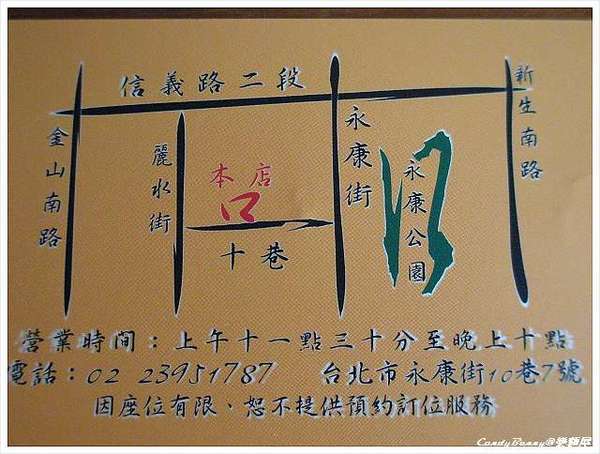 信義路二段
金山南路
麗水街
本店
永康街
永康公園
新生南路
十巷
營業時間：上午十一點三十分至晚上十點
電話：02 23951787 台北市永康街10巷7號
因座位有限、恕不提供預約訂位服務